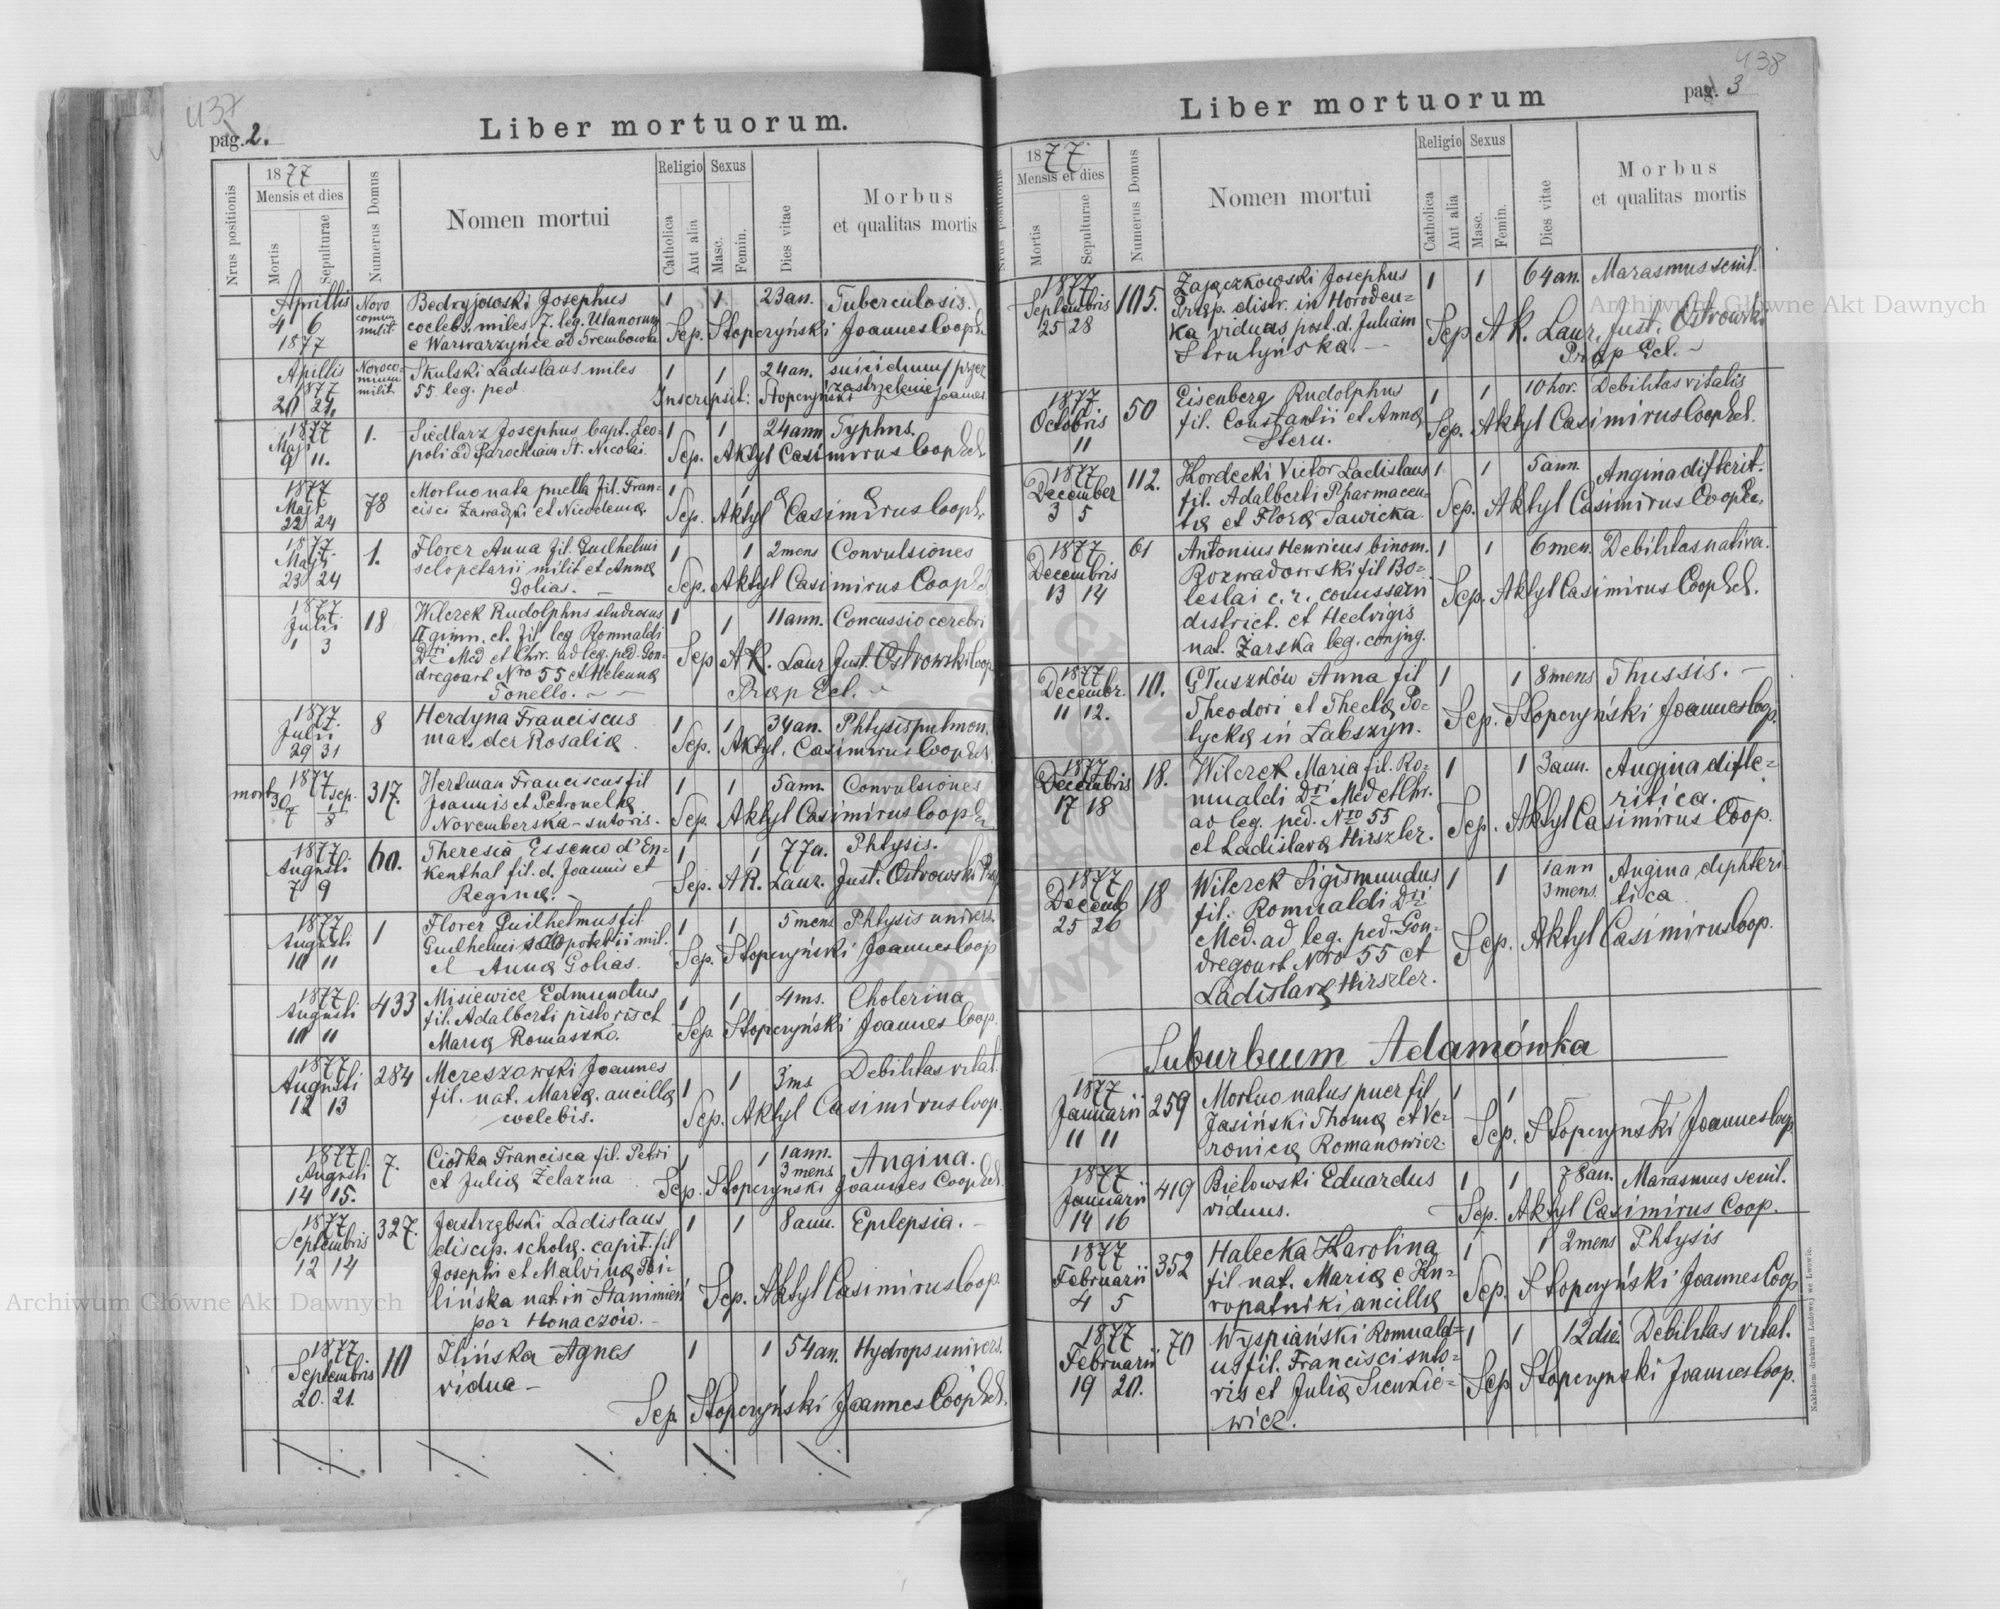 437
pag. 2.
Liber mortuorum.
Nrus positionis
1877
Mensis et dies
Mortis
Sepulturae
Numerus Domus
Nomen mortui
Religio
Catholica
Aut alia
Sexus
Masc.
Femin.
Dies vitae
Morbus
et qualitas mortis
Aprillis Novo Bedryjowski Josephus 1 1 23an. Tuberculosis.
4 6 milit coelebs. miles 7. leg. Ulanorum
1877 e Warwarzynce ad Trembowla Sep. Stopczyński Joannes Coop.
Aprillis Skulski Ladislaus miles 1 1 24an. suicidium/przez
1877 milit 55 leg. ped zastrzelenie/
21 Inscripsit: Stopczyński Joannes
1877 1. Siedlarz Josephus bapt. Leo- 1 1 24ann Typhus.
Maji poli ad parochiam St. Nicolai.
9 11. Sep. Aktyl Casimirus Coop Ecl
1877 78 Mortuo nata puella fil. Fran- 1 1
Maji cisci Zawadzki et Nicodemæ
22 24 Sep. Aktyl Casimirus Coop
1877 1. Florer Anna fil. Guilhelmi 1 1 2mens Convulsiones
Maji sclopetarii milit et Annæ
23 24 Golias. Sep. Aktyl Casimirus Coop
1877 18 Wilczek Rudolphus studiosus 1 1 11ann. Concussio cerebri
Julii II gimn. cl. fil. leg Romualdi
1 3 Dri Med et Chir. ad leg. ped. Gon-
dregourt Nro 55 et Helenæ Sep A R. Laur Just. Ostrowski
Tonello. Præp Ecl.
1877 8 Herdyna Franciscus 1 1 34an. Phtysis pulmon.
Julii mar. der Rosaliæ
29 31 Sep. Aktyl. Casimirus Coop Ecl.
mort 1877 sep. 317. Hertman Franciscus fil 1 1 5ann. Convulsiones
30/7 1/8 Joannis et Petronelæ
Novemberska - sutoris. Sep. Aktyl Casimirus Coop
1877 60. Theresia Essenco d'En- 1 1 77a. Phtysis.
Augusti kenthal fil. d. Joannis et
7 9 Reginæ. Sep. A R. Laur. Just. Ostrowski
1877 1 Florer Guilhelmus fil. 1 1 5mens Phtysis univers.
Augusti Guilhelmi mil.
10 11 et Annæ Golias. Sep. Stopczyński Joannes Coop
1877 433 Misiewicz Edmundus 1 1 4ms. Cholerina
Augusti fil. Adalberti pistoris et
10 11 Mariæ Romaszko. Sep. Stopczyński Joannes Coop.
1877 284 Mereszowski Joannes 1 1 3ms Debilitas vitat.
Augusti fil. nat. Mariæ. ancillæ
12 13 coelebis. Sep. Aktyl Casimirus Coop.
1877 7. Ciołka Francisca fil. Petri 1 1 1ann. 3mens Angina.
Augusti et Juliæ Żelazna
14 15. Sep. Stopczynski Joannes Coop Ecl.
1877 327. Jastrzębski Ladislaus 1 1 8ann. Epilepsia.
Septembris discip. scholæ. capit. fil
12 14 Josephi et Malvinæ
lińska nat. in
Honaczów. Sep. Aktyl Casimirus Coop.
1877 10 Ilińska Agnes 1 1 54an. Hydrops univers.
Septembris vidua
20. 21. Sep. Stopczyński Joannes Coop Ecl.
438
pag. 3
Liber mortuorum
Nrus positionis
1877
Mensis et dies
Mortis
Sepulturae
Numerus Domus
Nomen mortui
Religio
Catholica
Aut alia
Sexus
Masc.
Femin.
Dies vitae
Morbus
et qualitas mortis
1877 105. Zajączkowski Josephus 1 1 64an. Marasmus senil.
Septembris distr. in Horoden-
25 28 ka viduus post. d. Juliam
Strutyńska. Sep A R. Laur. Just. Ostrowski
Præp Ecl.
1877 50 Eisenberg Rudolphus 1 1 10hor. Debilitas vitalis
Octobris fil. Constantii et Annæ
11 Stern. Sep. Aktyl Casimirus Coop Ecl.
1877 112. Kordecki Victor Ladislaus 1 1 5ann. Angina difterit.
December fil. Adalberti Pharmaceu-
3 5 tæ et Floræ Sawicka Sep. Aktyl Casimirus Coop Ec.
1877 61 Antonius Henricus binom. 1 1 6men. Debilitas nativa.
Decembris Rozwadowski fil Bo-
13 14 leslai c. r. comissarii Sep. Aktyl Casimirus Coop Ecl.
district. et Hedvigis
nat. Żarska leg. conjug.
1877 10. Głuszków Anna fil 1 1 8mens Thussis.
Decembr. Theodori et Theclæ Po-
11 12. lyckæ in Łabszyn. Sep. Stopczyński Joannes Coop.
1877 18. Wilczek Maria fil. Ro- 1 1 3ann. Angina difte-
Decembris mualdi Dri Med et Chr. ritica.
17 18 ad leg. ped. Nro 55
et Ladislavæ Hirszler. Sep. Aktyl Casimirus Coop.
1877 18 Wilczek Sigismundus 1 1 1ann 3mens. Angina diphteri-
Decemb fil. Romualdi Dri tica
25 26 Med. ad leg. ped. Gon-
dregourt Nro 55 et Sep. Aktyl Casimirus Coop.
Ladislavæ Hirszler.
Suburbium Adamówka
1877 259 Mortuo natus puer fil 1 1
Januarii Jasiński Thomæ et Ve-
11 11 ronicæ Romanowicz. Sep. Stopczynski Joannes Coop.
1877 419 Bielowski Eduardus 1 1 78an. Marasmus senil.
Januarii viduus.
14 16 Sep. Aktyl Casimirus Coop.
1877 352 Halecka Karolina 1 1 2mens Phtysis
Februarii fil nat. Mariæ e Hu-
4 5 ropatniki ancillæ Sep. Stopczyński Joannes Coop
1877 70 Wyspiański Romuald- 1 1 12die. Debilitas vitat.
Februarii us fil. Francisci suto-
19 20. ris et Juliæ Sienkie- Sep Stopczynski Joannes Coop.
wicz.
Nakładem drukarni Ludowej we Lwowie.
Archiwum Główne Akt Dawnych
Archiwum Główne Akt Dawnych